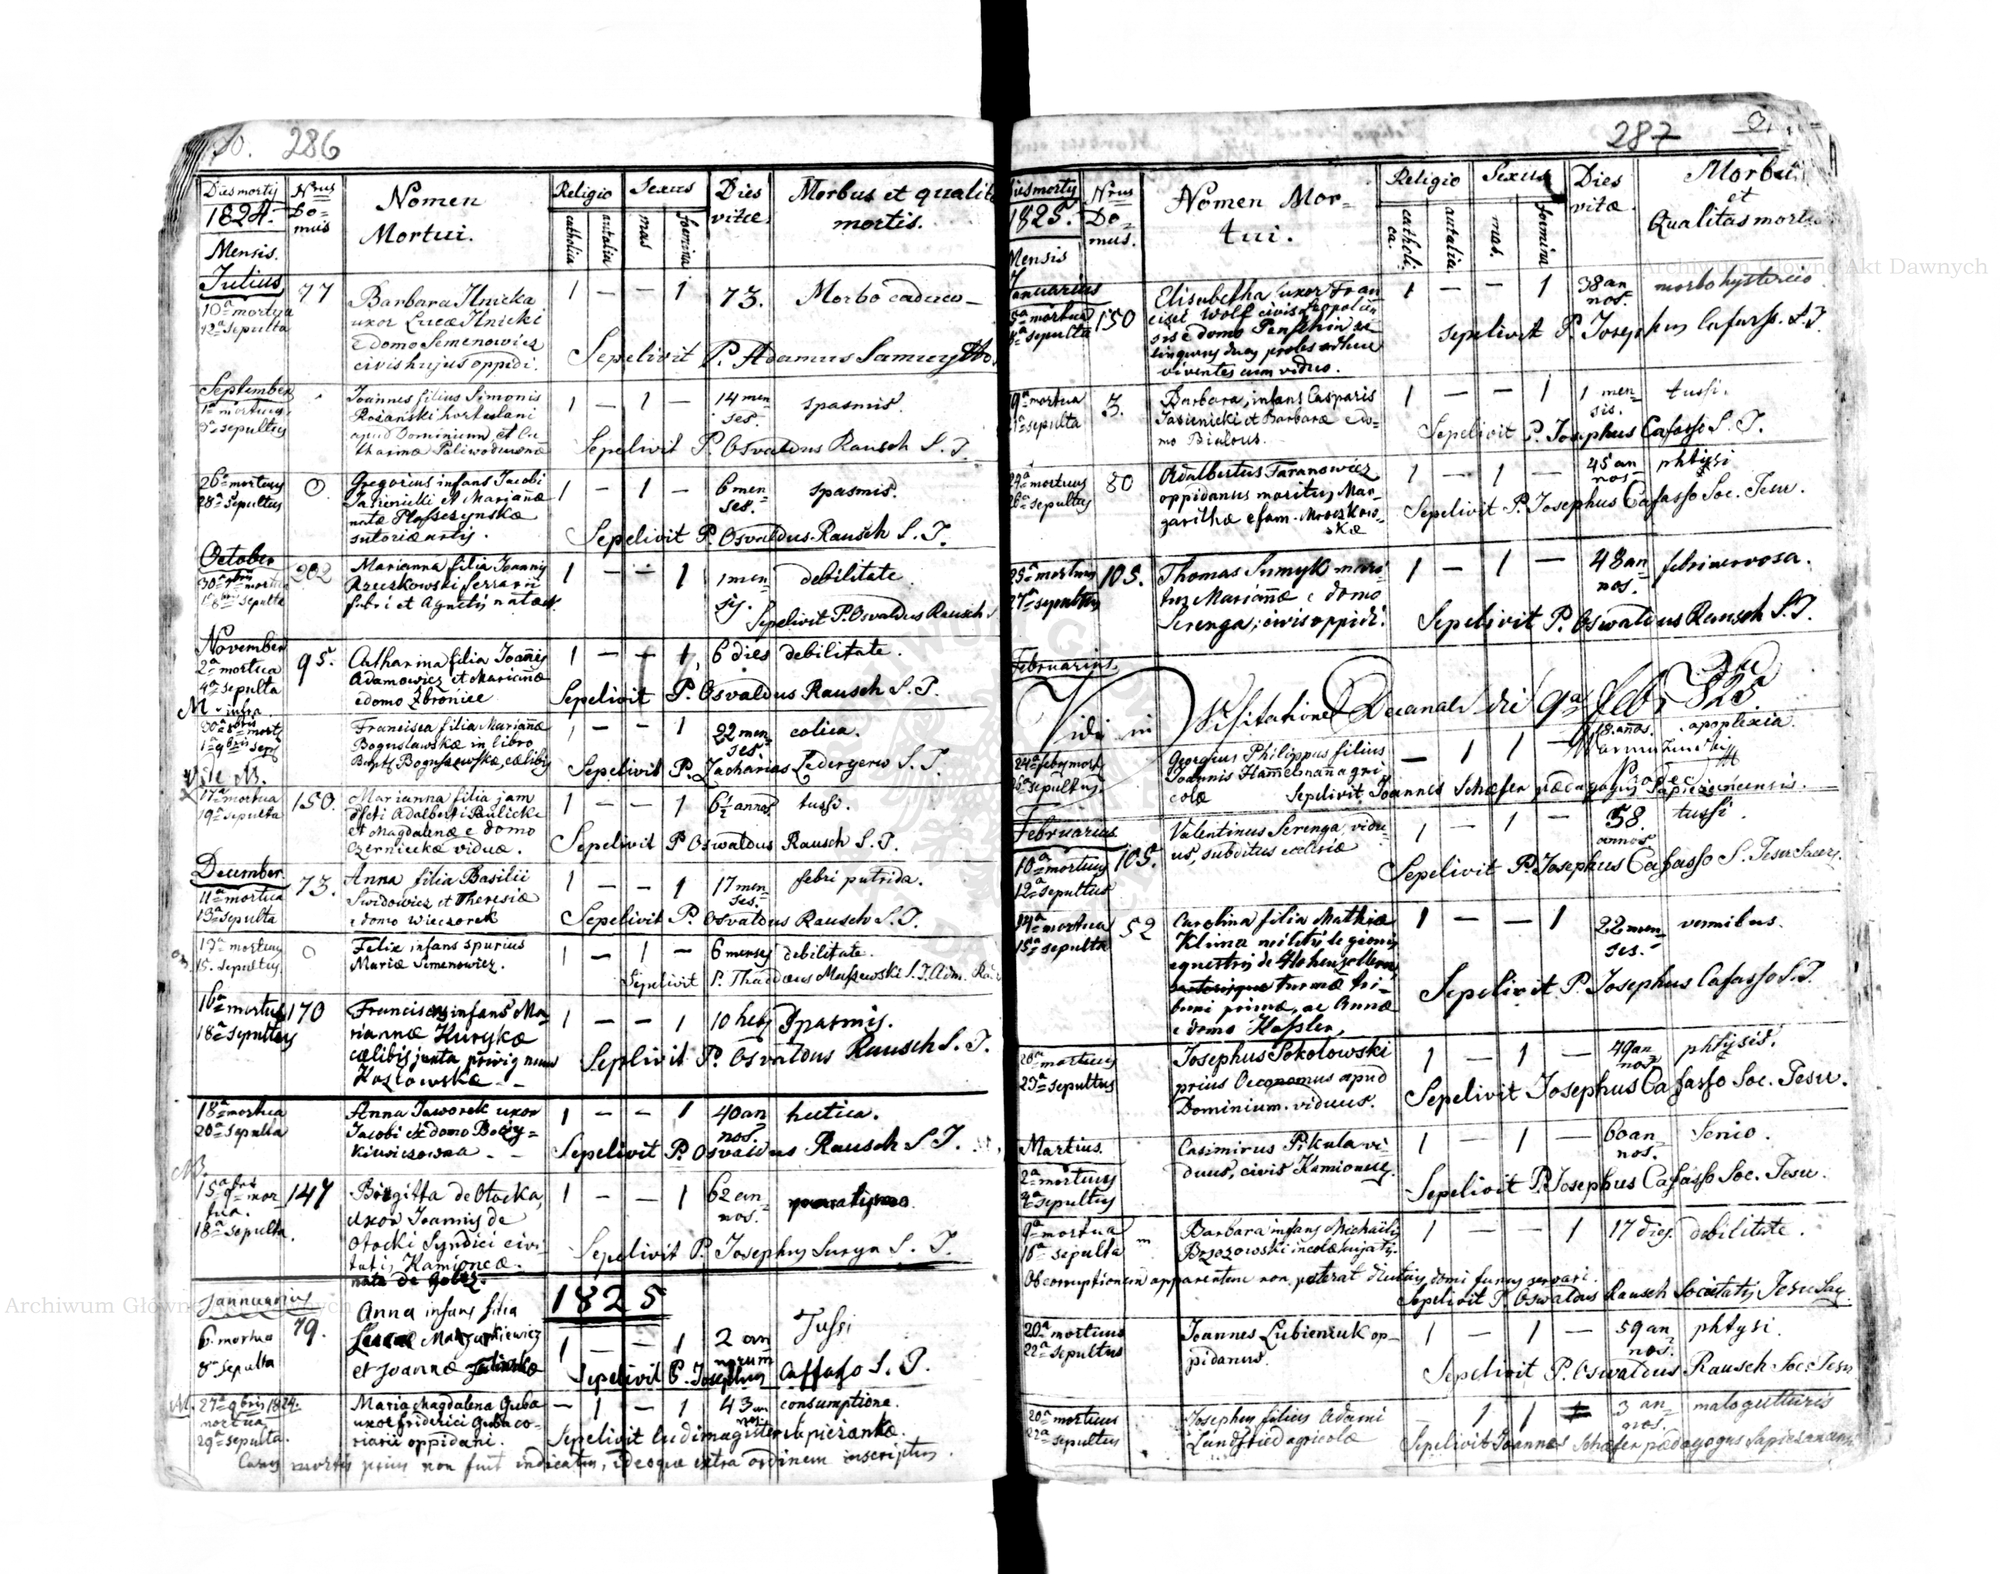 286
Dies mortis
1824.
Mensis.
Nrus
Do-
mus
Nomen
Mortui.
Religio
catholica
autalia
Sexus
mas
foemina
Dies
vitae
Morbus et qualit
mortis.
Julius
10a mortua
12a sepulta
77
Barbara Ilnicka
uxor Lucae Ilnicki
e domo Semenowicz
civis hujus oppidi.
1 — — 1
73.
Morbo caduco —
Sepelivit P. Adamus Samuy
September
1a mortuus
3a sepultus
Joannes filius Simonis
Rozanski hortulani
apud Dominium et Ca-
tharinae Paliwodzianae
1 — 1 —
14 men
ses.
spasmis.
Sepelivit P. Osvaldus Rausch S. J.
26a mortuus
28a sepultus
0.
Gregorius infans Jacobi
Jasienicki et Mariannae
natae Plasczynskae
sutoriae artis.
1 — 1 —
6 men
ses.
spasmis.
Sepelivit P. Osvaldus Rausch S. J.
October
30a mortua
sepulta
202
Marianna filia Joannis
Rzeczkowski ferrarii
fabri et Agnetis natae
1 — — 1
1 men
sis.
debilitate.
Sepelivit P. Osvaldus Rausch S
November
2a mortua
4a sepulta
95.
Catharina filia Joannis
Adamowicz et Mariannae
e domo Zbroncce
1 — — 1
6 dies
debilitate.
Sepelivit P. Osvaldus Rausch S. J.
infra
30a 8bris mort
1a 9bris sepl
Francisca filia Mariannae
Boguslawskae in libro
Bapt Boguszewskae, caelibis
1 — — 1
22 men
ses.
colica.
Sepelivit P. Zacharias Ledergerw S. J.
17a mortua
19a sepulta
150.
Marianna filia jam
Adalberti Paulicki
et Magdalenae e domo
Czernickae viduae.
1 — — 1
6 1/2 annos
tussi.
Sepelivit P Oswaldus Rausch S. J.
December
11a mortua
13a sepulta
73.
Anna filia Basilii
Swidowicz et Theresiae
e domo Wieczorek
1 — — 1
17 men
ses.
febri putrida.
Sepelivit P. Osvaldus Rausch S. J.
mortuus
15. sepultus
0
Felix infans spurius
Mariae Simenowicz.
1 — 1 —
6 menses
debilitate.
Sepelivit P. Thaddaeus Massewski S. J.
16a mortus
18a sepultus
170
Franciscus infans Ma-
riannae Kurykae
caelibis juxta
Kozlowskae
1 — — 1
10 heb
Spasmis.
Seplivit P. Osvaldus Rausch S. J.
18a mortua
20a sepulta
Anna Jaworek uxor
Jacobi ex domo
1 — — 1
40 an
nos.
hectica.
Sepelivit P Osvaldus Rausch S J.
NB.
15a mor
tua.
18a sepulta.
147
Brigitta de Otocka,
uxor Joannis de
Otocki Syndici civi-
tatis Kamioncae.
nata de
1 — — 1
62 an
nos.
Sepelivit P. Josephus Suryn S. J.
1825
Jannuarius
6. mortua
8a sepulta
79.
Anna infans filia
Lucae Mazurkiewicz
et Joannae
1 — — 1
2 an
norum
Tussi
Sepelivit P. Josephus Caffasso S. J.
27a 9bris 1824.
mortua
29a sepulta.
Maria Magdalena Guba
uxor Friderici Guba co-
riarii oppidani.
— 1 — 1
43 an
nos.
consumptione.
Sepelivit ludimagister Sapierankae.
Casus mortis prius non fuit indicatus, ideoque extra ordinem inscriptus.
287
Dies mortis
1825.
Mensis
Nrus
Do-
mus.
Nomen Mor-
tui.
Religio
catholi
ca.
autalia
Sexus
mas.
foemina
Dies
vitae
Morbus
et
Qualitas mortis
Januarius
mortua
sepulta
150
Elisabetha uxor Fran
cisci Wolf civis Leopolien
sis e domo
linquens duas proles adhuc
viventes cum viduo.
1 — — 1
38 an
nos.
morbo hysterico
Sepelivit P. Josephus Cafasso. S. J.
19a mortua
sepulta
3.
Barbara, infans Casparis
Jasienicki et Barbarae e do-
mo Bialous.
1 — — 1
1 men
sis.
tussi.
Sepelivit P. Josephus Cafasso S. J.
24a mortuus
26a sepultus
80
Adalbertus Taranowicz
oppidanus maritus Mar-
garithae e fam. Mroczkow-
skae
1 — 1 —
45 an
nos.
phtysi
Sepelivit P. Josephus Cafasso Soc. Jesu.
25a mortuus
27a sepultus
105.
Thomas Sumyk mari-
tus Mariannae e domo
Serenga, civis oppidi.
1 — 1 —
48 an
nos.
febri nervosa.
Sepelivit P. Oswaldus Rausch S. J.
Februarius
Vidi in Visitatione Decanali die 9a febr 825
24a febr mort
26a sepultus
Georgius Philippus filius
Joannis Hamelmann agri
colae
— 1 1 —
18. annos.
apoplexia.
Sepelivit Joannes Schaefer paedagogus Sapiezancensis.
Februarius
10a mortuus
12a sepultus
105.
Valentinus Serenga, vidu-
us, subditus ecclesiae
1 — 1 —
58
annos
tussi.
Sepelivit P. Josephus Cafasso S. Jesu Sacer.
14a mortua
15a sepulta
52
Carolina filia Mathiae
Klima militis legionis
equestris de Hohenzollern
turmae tri-
buni primae, ac Annae
e domo Hassler,
1 — — 1
22 men
ses.
vermibus.
Sepelivit P. Josephus Cafasso S. J.
20a mortuus
23a sepultus
Josephus Sokolowski
prius Oeconomus apud
Dominium. viduus.
1 — 1 —
49 an
nos
phtysis.
Sepelivit Josephus Cafasso Soc. Jesu.
Martius.
2a mortuus
4a sepultus
Casimirus Pikula vi-
duus, civis Kamioncens.
1 — 1 —
60 an
nos.
Senio.
Sepelivit P. Josephus Cafasso Soc. Jesu.
9a mortua
10a sepulta
Barbara infans Michaelis
Brzozowski incolae hujatis.
1 — — 1
17 dies.
debilitate.
Ob corruptionem apparentem non poterat diutius domi funus servari.
Sepelivit P. Oswaldus Rausch Societatis Jesu Sac.
20a mortuus
22a sepultus
Joannes Lubieniuk op-
pidanus.
1 — 1 —
59 an
nos.
phtysi.
Sepelivit P. Oswaldus Rausch Soc. Jesu
20a mortuus
22a sepultus
Josephus filius Adami
Landfried agricolae
— 1 1
3 an-
nos.
malo gutturis
Sepelivit Joannes Schaefer paedagogus Sapiezancensis
Archiwum Główne Akt Dawnych
Archiwum Główne Akt Dawnych